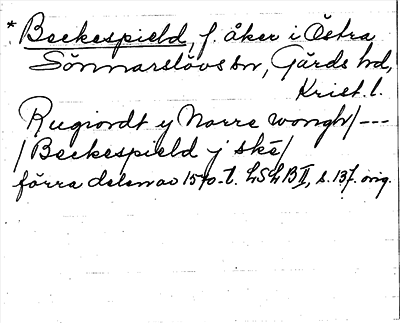 * Beckespield, f. åker i Östra
Sönnarslövs sn, Gärds hd,
Krist. l.
Rugiordt y Norre wongh/ ---
/ Beckespield j skê/
förra delen av 1570-t. LSLB II, s. 137. orig.